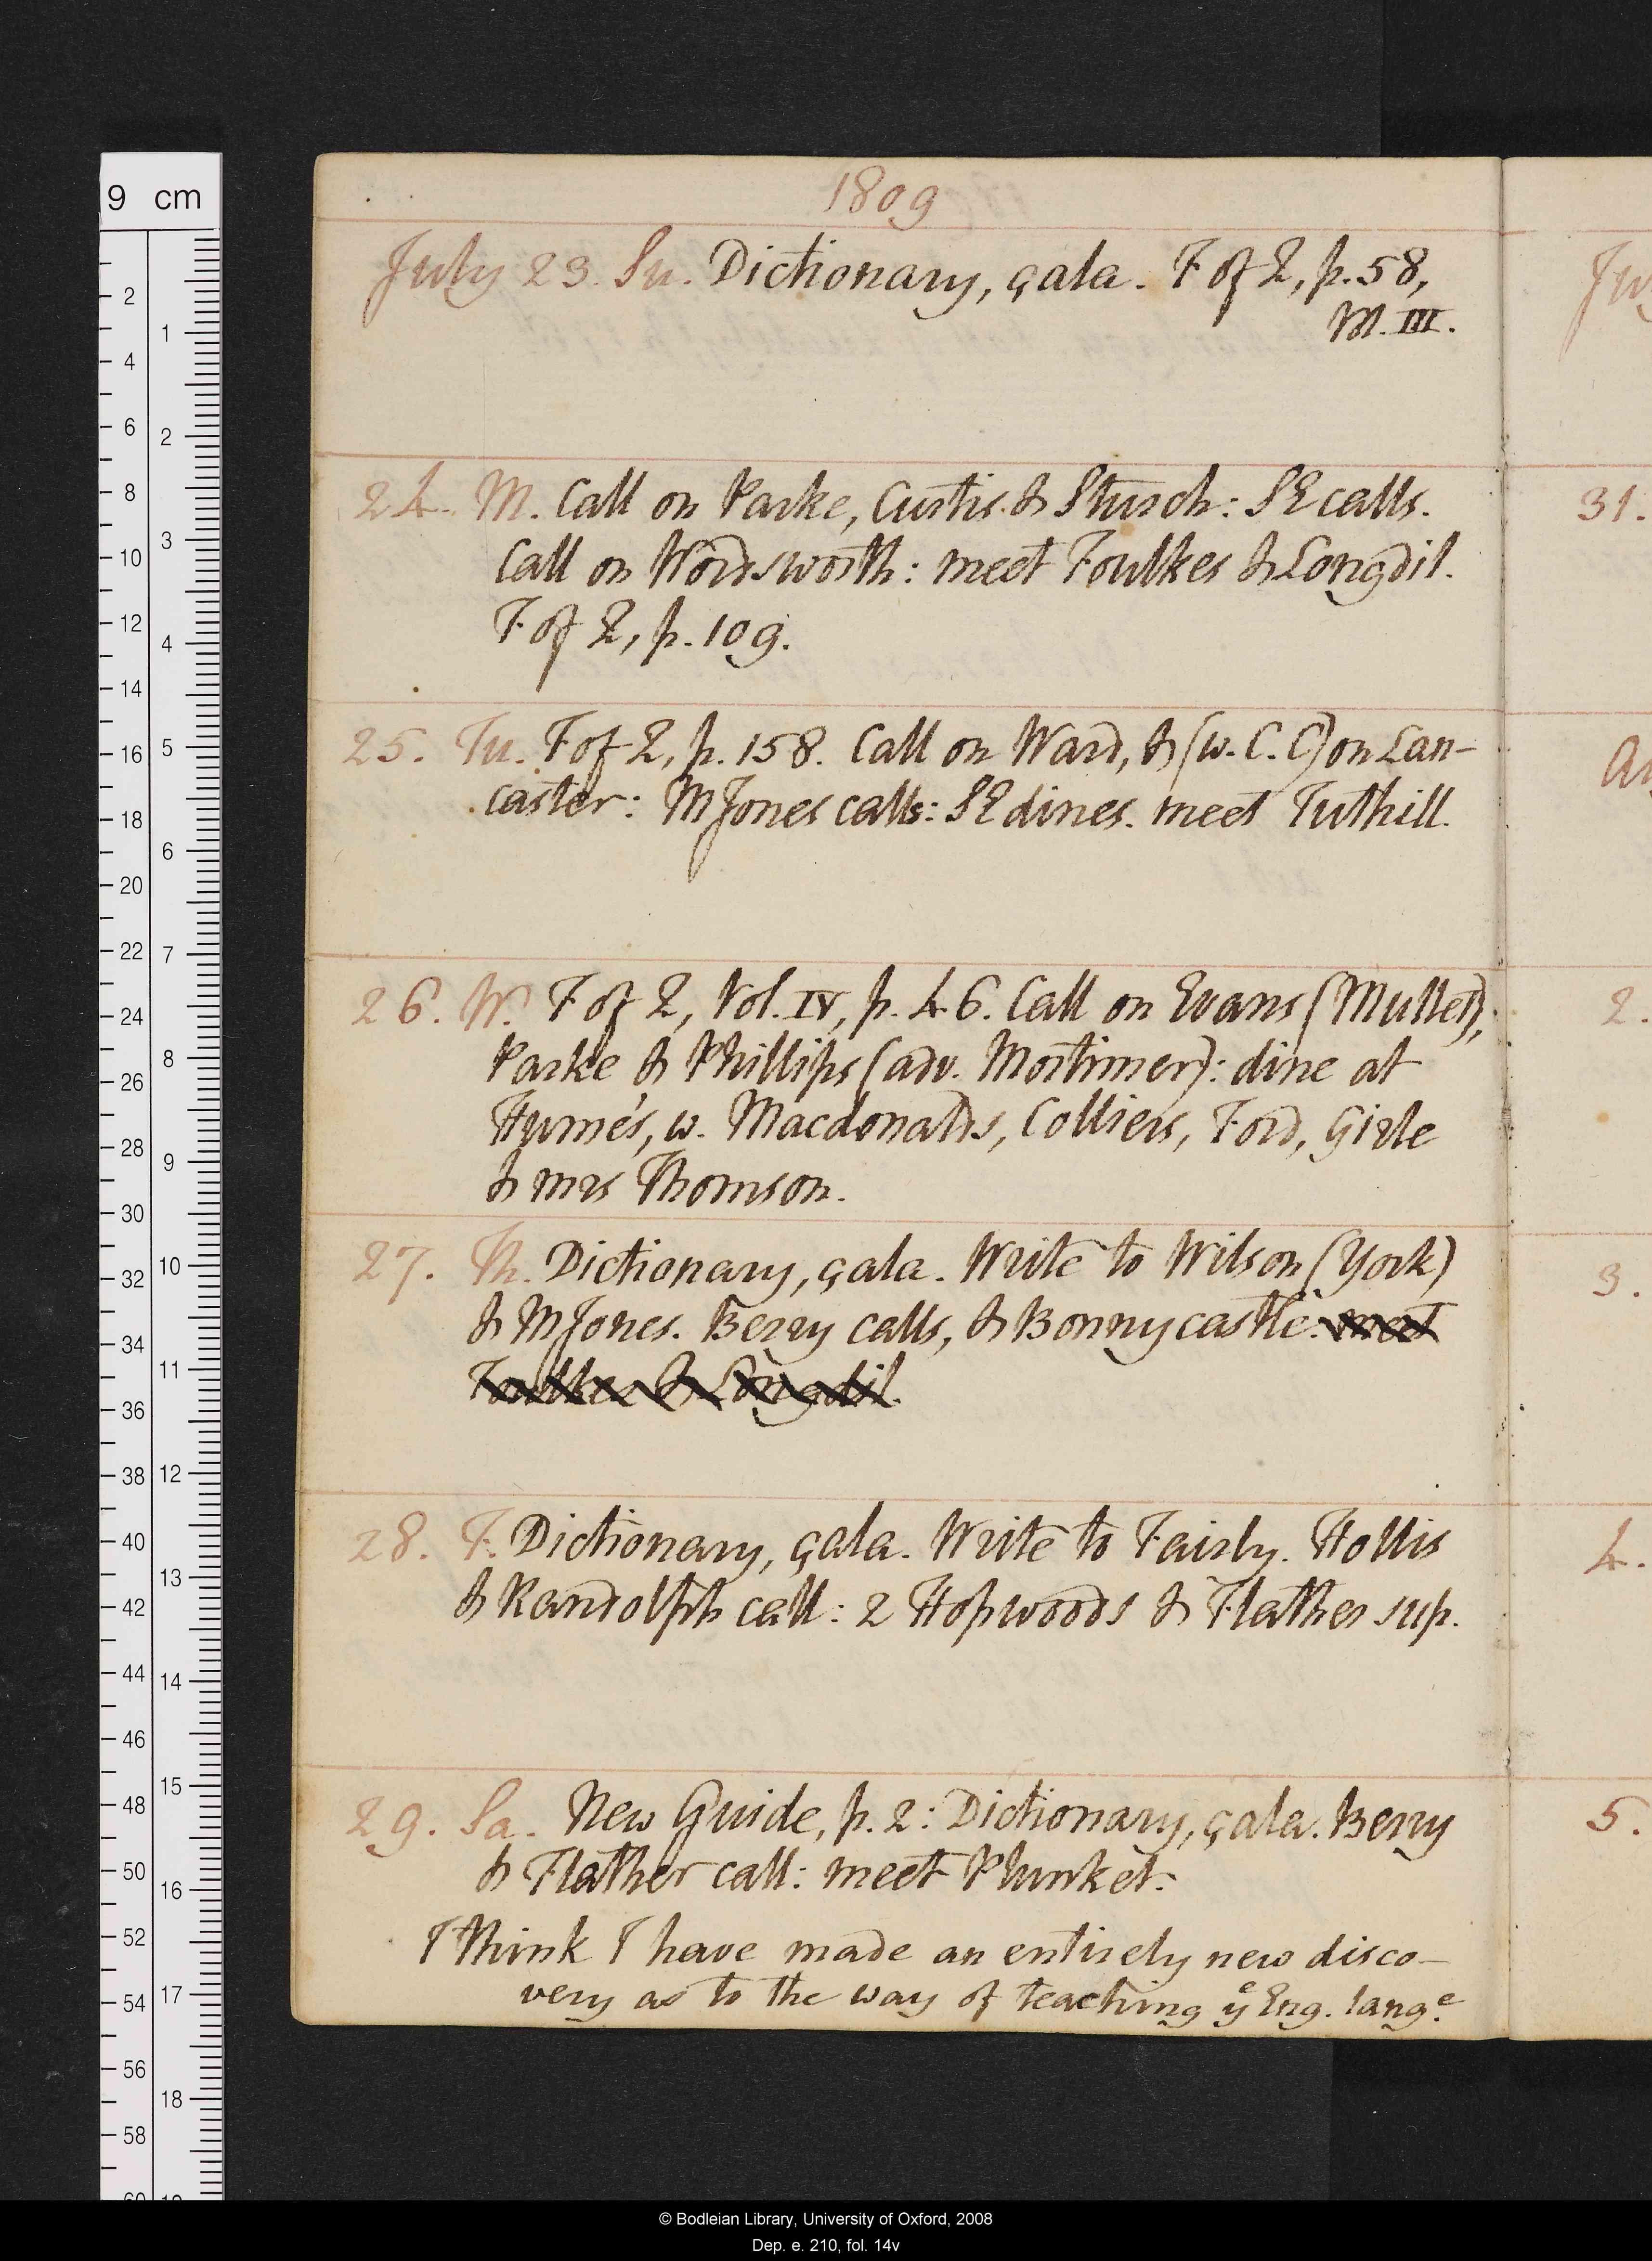 1809
July 23. Su. Dictionary, çala. F of Q, p. 58,
M. III.
24. M. Call on Parke, Curtis & Sturch: SE calls.
Call on Wordsworth: meet Foulkes & Longdil.
F of Q, p. 109.
25. Tu. F of Q, p. 158. Call on Ward, & (w. C. C) on Lan-
caster: M Jones calls: SE dines. meet Tuthill.
26. W. F of Q, Vol. IV, p. 46. Call on Evans (Mullet),
Parke & Phillips (adv. Mortimer): dine at
Hume's, w. Macdonalds, Colliers, Ford, Girle
& mrs Thomson.
27. Th. Dictionary, çala. Write to Wilson (York)
& M Jones. Berry calls, & Bonnycastle: meet
Foulkes & Longdil.
28. F. Dictionary, çala. Write to Fairly. Hollis
& Randolph call: 2 Hopwoods & Flather sup.
29. Sa. New Guide, p. 2: Dictionary, çala. Berry
& Flather call: meet Plunket.
I think I have made an entirely new disco-
very as to the way of teaching yᵉ Eng. langᵉ.
31.
2.
3.
4.
5.
9 cm
2
4
6
8
10
12
14
16
18
20
22
24
26
28
30
32
34
36
38
40
42
44
46
48
50
52
54
56
58
1
2
3
4
5
6
7
8
9
10
11
12
13
14
15
16
17
18
© Bodleian Library, University of Oxford, 2008
Dep. e. 210, fol. 14v